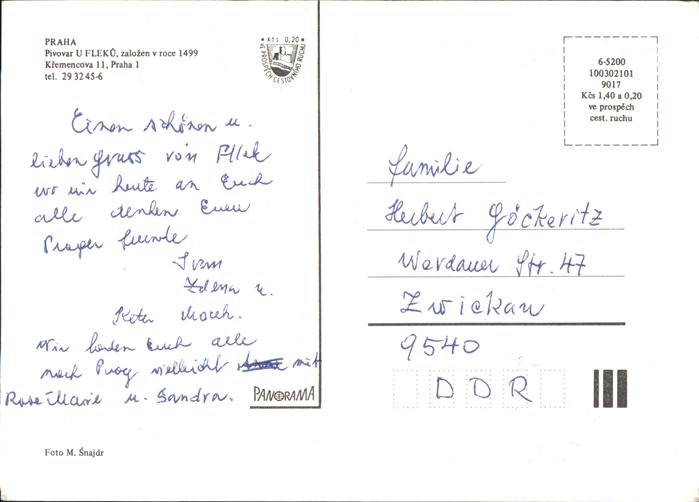 PRAHA
Pivovar U FLEKŮ, založen v roce 1499
Křemencova 11, Praha 1
tel. 29 32 45-6
Kčs 0,20
VE PROSPĚCH CESTOVNÍHO RUCHU
6-5200
100302101
9017
Kčs 1,40 a 0,20
ve prospěch
cest. ruchu
Einen schönen u.
lieben gruss von Flek
wo wir heute an Euch
alle denken Euere
Prager freunde
Zdena u.
Wir laden Euch alle
nach Prag vielleicht mit
Rose-Marie u. Sandra.
PANORAMA
Foto M. Šnajdr
familie
Herbert Göckeritz
Werdauer Str. 47
Zwickau
9540
DDR